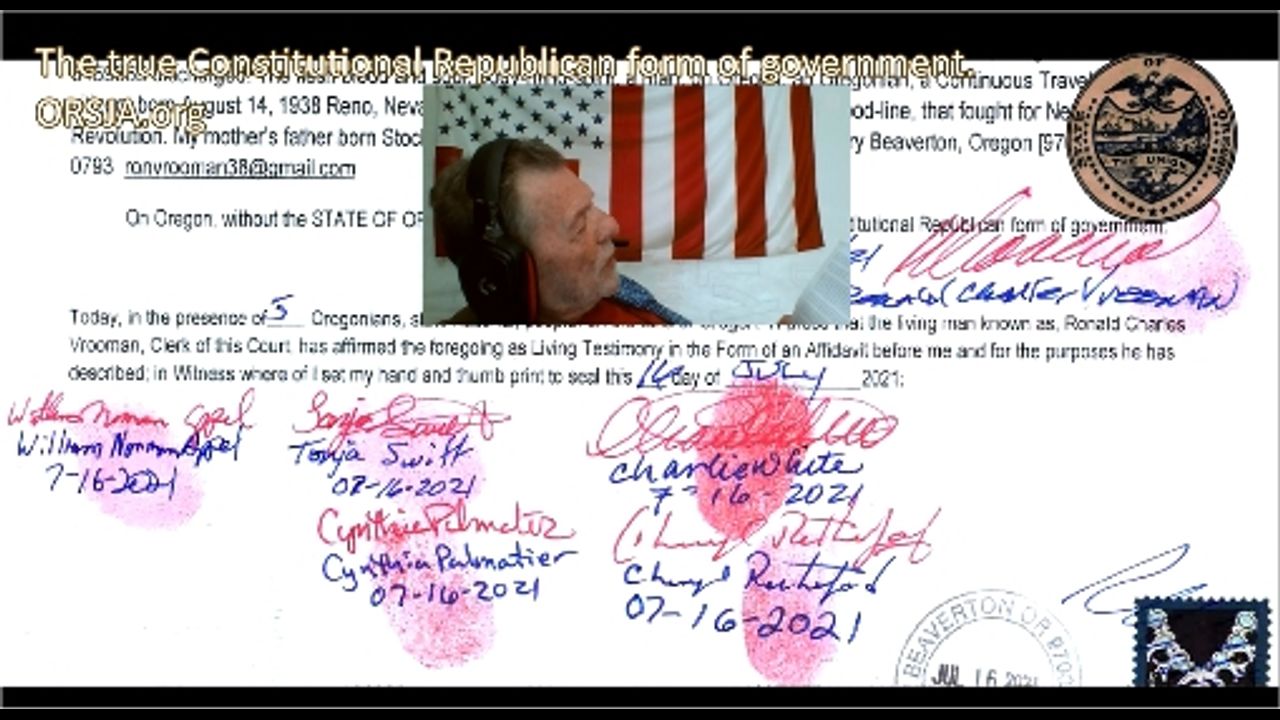 The true Constitutional Republican form of government.
ORSJA.org
a Continuous
born August 14, 1938 Reno,
that fought for
Revolution. My mother's father born
Beaverton, Oregon
0793 ronvrooman38@gmail.com
On Oregon, without the STATE OF
Republican form of government.
Today, in the presence of 5 Oregonians,
that the living man known as, Ronald Charles
Vrooman, Clerk of this Court, has affirmed the foregoing as Living Testimony in the Form of an Affidavit before me and for the purposes he has
described; in Witness where of I set my hand and thumb print to seal this 16 day of July 2021:
William Norman Appel
7-16-2021
Tonja Swift
07-16-2021
Charlie White
7-16-2021
Cynthia Palmatier
07-16-2021
Cheryl
07-16-2021
BEAVERTON OR
JUL 16 2021
STATE OF OREGON
THE UNION